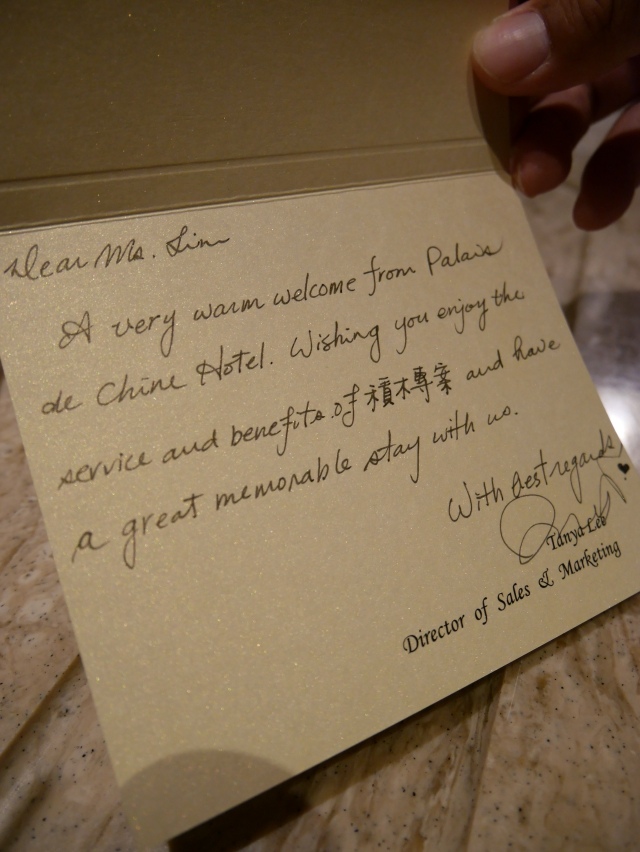 Dear Ms. Lim
A very warm welcome from Palais
de Chine Hotel. Wishing you enjoy the
service and benefits of 積木專案 and have
a great memorable stay with us.
With best regards
Tanya Lee
Director of Sales & Marketing